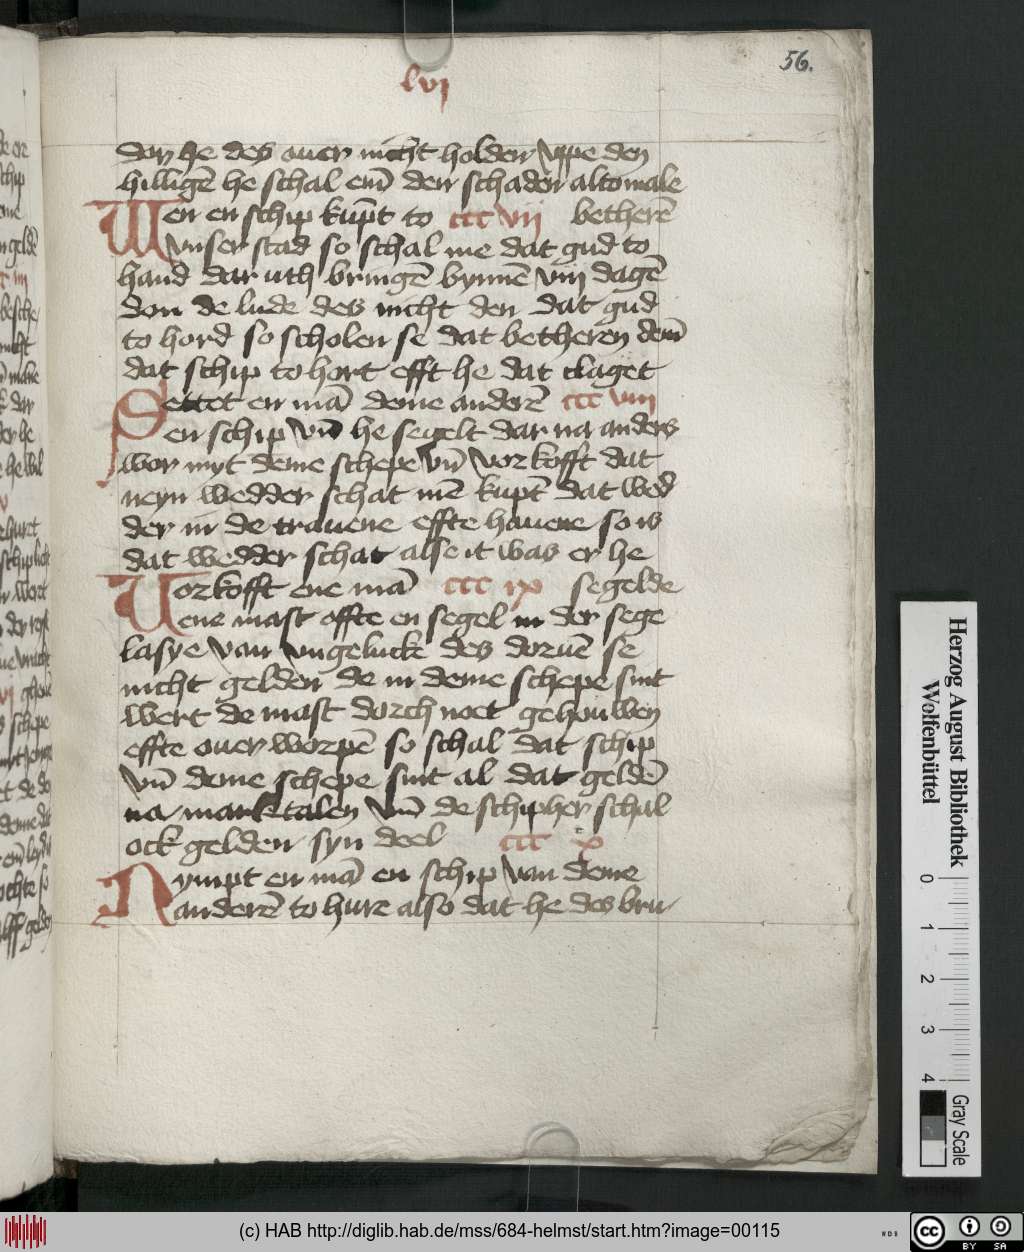 56.
lvi
dor he des ouer nicht holden vppe den
hilligē he schal em̄ den schaden altomale
Wen en schip kūpt to ccc vii betherē
vnser stad so schal me dat gud to
hand dar uth bringē bynnē viii dagē
don de lude des nicht den dat gud
to hord so scholen se dat betheren dem̄
dat schip to hort efft he dat claget
Settet en mā deme anderē ccc viii
en schip vn̄ he segelt dar na anders
wor myt deme schepe vn̄ vorkofft dat
neyn wedder schat mē kūpt dat wed
der in de trauene effte hauene so is
dat wedder schat alse it was er he
Vorkofft ene mā ccc ix segelde
ene mast offte en segel in der sege
lasye van vngelucke des doruē se
nicht gelden de in deme schepe sint
wert de mast dorch noet gehouwen
effte ouer worpē so schal dat schip
vn̄ deme schepe sint al dat geldē
na marktalen vn̄ de schipher schal
ock gelden syn deel ccc x
Nympt en mā en schip van deme
anderē to hure also dat he des bru
Herzog August Bibliothek
Wolfenbüttel
0 1 2 3 4
Gray Scale
(c) HAB http://diglib.hab.de/mss/684-helmst/start.htm?image=00115
cc BY SA